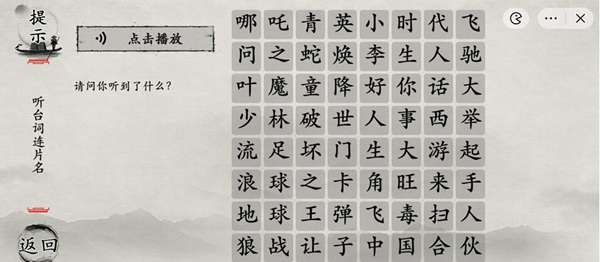 提示
点击播放
请问你听到了什么？
听台词连片名
返回
哪吒青英小时代飞
问之蛇焕李生人驰
叶魔童降好你话大
少林破世人事西举
流足坏门生大游起
浪球之卡角旺来手
地球王弹飞毒扫人
狼战让子中国合伙